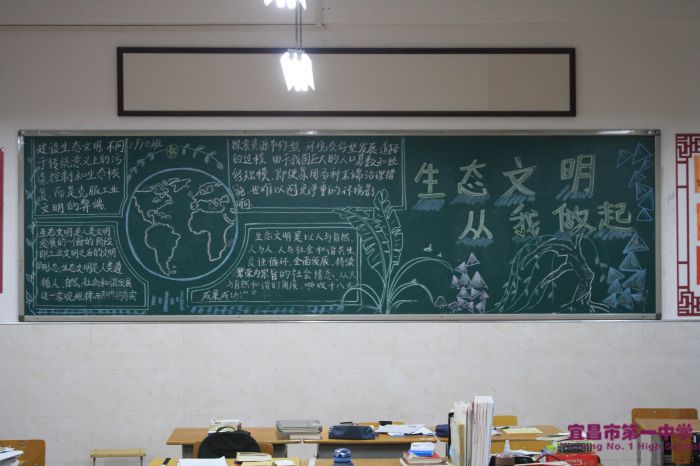 建设生态文明,不同
于传统意义上的污
染控制和生态恢
复,而是克服工业
文明的弊端
1910班
探索资源节约型、环境友好型发展道路
的过程。由于我国巨大的人口基数和经
济规模,即使采用各种末端治理措
施,也难以避免严重的环境影
响
生态文明是人类文明
发展的一个新的阶段
即工业文明之后的文明
形态;生态文明是人类遵
循人、自然、社会和谐发展
这一客观规律而
生态文明是以人与自然、
人与人、人与社会和谐共生
良性循环、全面发展、持续
繁荣为基
的社会
与自然和谐的
成果
生态文明
从我做起
宜昌市第一中学
Yichang No.1 High School